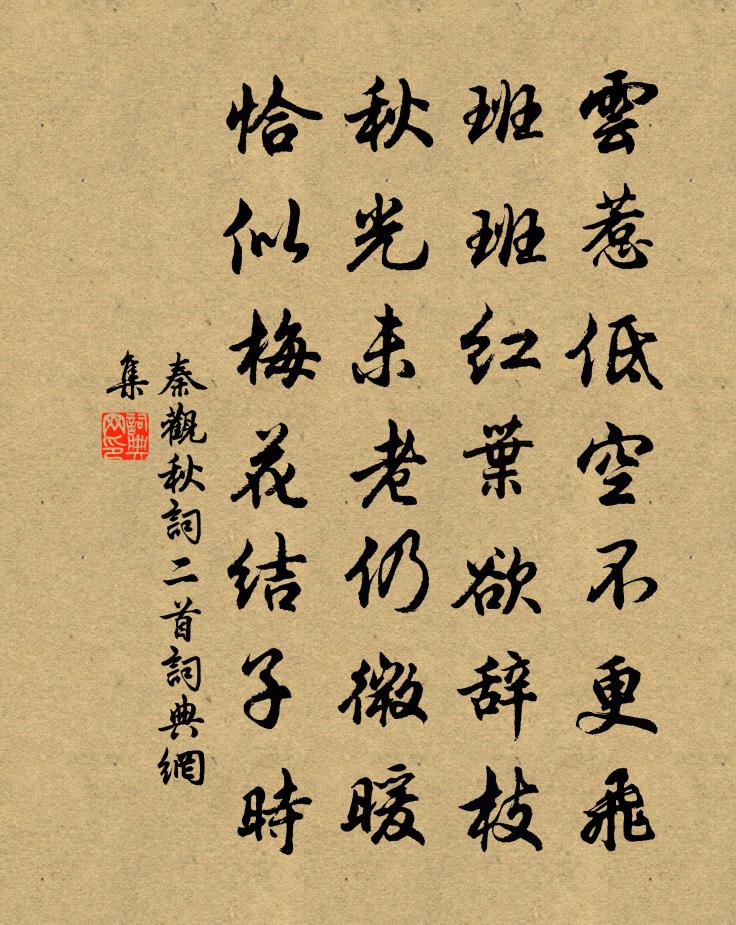 雲惹低空不更飛
班班紅葉欲辞枝
秋光未老仍微暖
恰似梅花結子時
秦觀秋詞二首詞典網
集
詞典網印